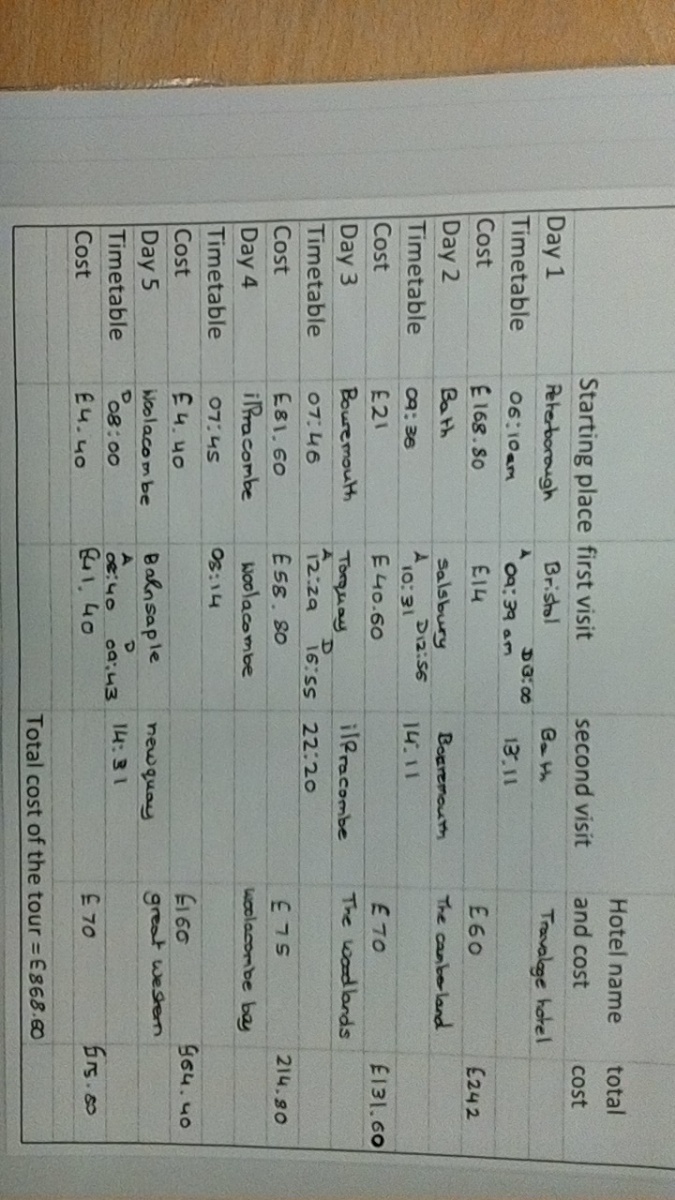 Hotel name total
Starting place first visit second visit and cost cost
Day 1 Peterborough Bristol Bath Travaloge hotel
Timetable 06:10am A 09:39 am D 13:11
Cost £168.80 £14 £60 £242
Day 2 Bath Salsbury The
Timetable 09:36 A 10:31 D12:56 14.11
Cost £21 £40.60 £70 £131.60
Day 3 Torquay ilfracombe The woodlands
Timetable 07:46 A 12:29 D 16:55 22:20
Cost £81.60 £58.80 £75 214.80
Day 4 ilfracombe woolacombe woolacombe bay
Timetable 07:45 08:14
Cost £4.40 £160 £64.40
Day 5 Woolacombe newquay great western
Timetable D 08:00 A 08:40 D 09:43 14:31
Cost £4.40 £41.40 £70
Total cost of the tour = £868.60